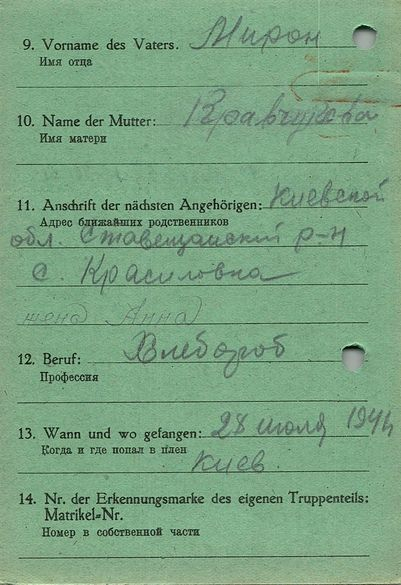 9. Vorname des Vaters. Мирон
Имя отца
10. Name der Mutter: Кравчукова
Имя матери
11. Anschrift der nächsten Angehörigen: Киевской
Адрес ближайших родственников
обл. Ставещанский р-н
с. Красиловка
жена Анна
12. Beruf: Хлебороб
Профессия
13. Wann und wo gefangen: 28 июля 1941
Когда и где попал в плен
Киев
14. Nr. der Erkennungsmarke des eigenen Truppenteils:
Matrikel=Nr.
Номер в собственной части